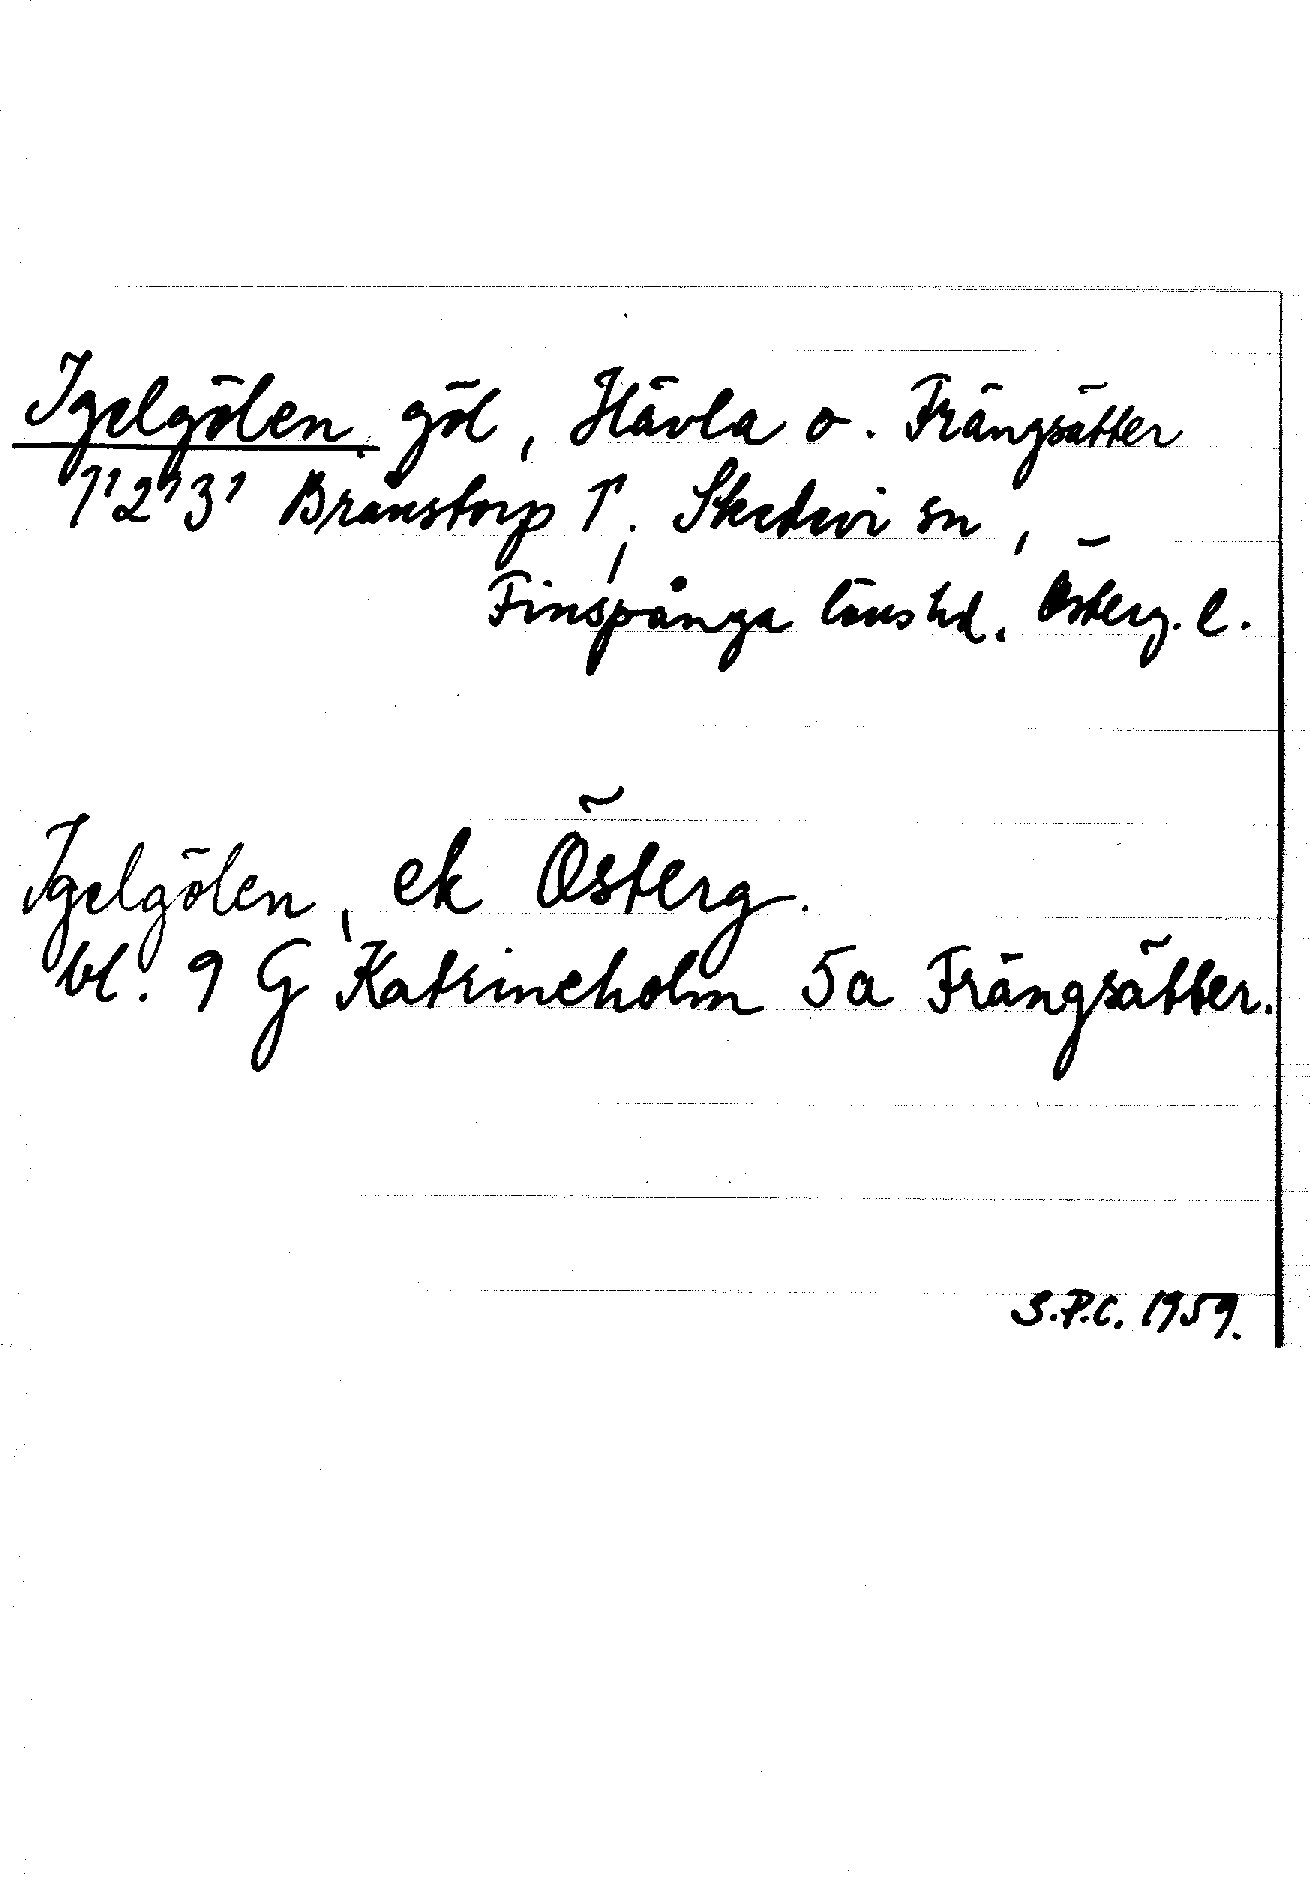 Igelgölen, göl, Hävla o. Frängsätter
1¹ 2¹ 3¹ Bränstorp 1¹, Skedevi sn,
Finspånga läns hd. Österg. l.
Igelgölen, ek Österg.
bl. 9 G Katrineholm 5a Frängsätter.
S.P.C. 1959.